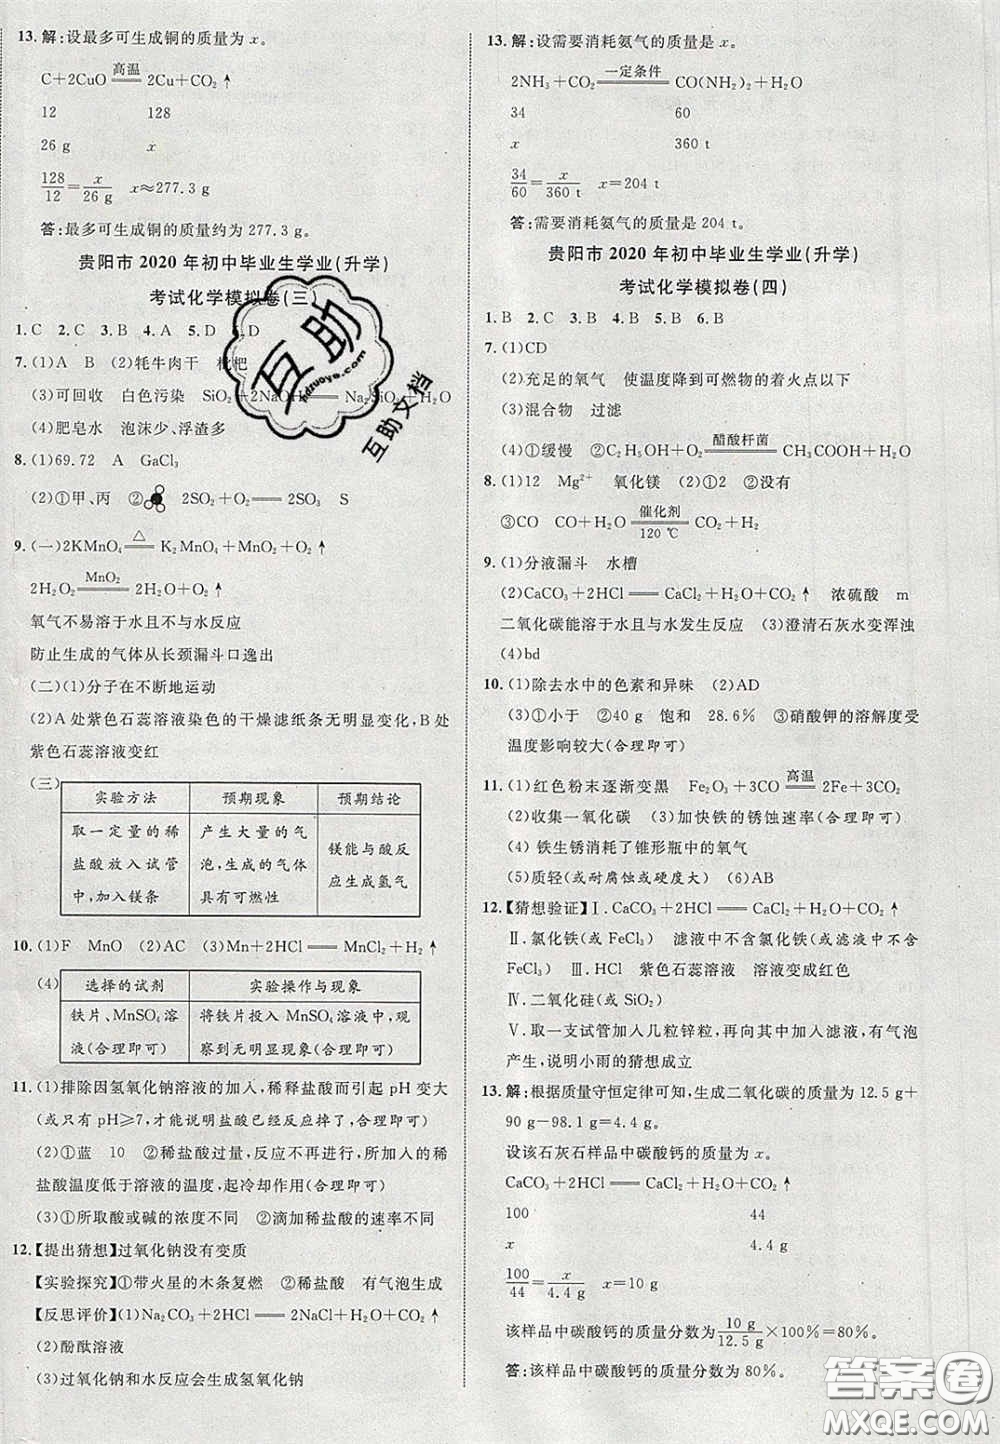 13.解:设最多可生成铜的质量为 x。
C+2CuO 高温 2Cu+CO₂↑
12 128
26 g x
128/12=x/26 g x≈277.3 g
答:最多可生成铜的质量约为 277.3 g。
贵阳市 2020 年初中毕业生学业(升学)
考试化学模拟卷(三)
1.C 2.C 3.B 4.A 5.D 6.D
7.(1)A B (2)牦牛肉干 枇杷
(3)可回收 白色污染 SiO₂+2NaOH══Na₂SiO₃+H₂O
(4)肥皂水 泡沫少、浮渣多
8.(1)69.72 A GaCl₃
(2)①甲、丙 ② 2SO₂+O₂══2SO₃ S
9.(一)2KMnO₄ △ K₂MnO₄+MnO₂+O₂↑
2H₂O₂ MnO₂ 2H₂O+O₂↑
氧气不易溶于水且不与水反应
防止生成的气体从长颈漏斗口逸出
(二)(1)分子在不断地运动
(2)A处紫色石蕊溶液染色的干燥滤纸条无明显变化,B处
紫色石蕊溶液变红
(三)
实验方法 预期现象 预期结论
取一定量的稀盐酸放入试管中,加入镁条 产生大量的气泡,生成的气体具有可燃性 镁能与酸反应生成氢气
10.(1)F MnO (2)AC (3)Mn+2HCl══MnCl₂+H₂↑
(4)
选择的试剂 实验操作与现象
铁片、MnSO₄溶液(合理即可) 将铁片投入 MnSO₄溶液中,观察到无明显现象(合理即可)
11.(1)排除因氢氧化钠溶液的加入,稀释盐酸而引起 pH 变大
(或只有 pH≥7,才能说明盐酸已经反应完)(合理即可)
(2)①蓝 10 ②稀盐酸过量,反应不再进行,加入的稀
盐酸温度低于溶液的温度,起冷却作用(合理即可)
(3)①所取酸或碱的浓度不同 ②滴加稀盐酸的速率不同
12.【提出猜想】过氧化钠没有变质
【实验探究】①带火星的木条复燃 ②稀盐酸 有气泡生成
【反思评价】(1)Na₂CO₃+2HCl══2NaCl+H₂O+CO₂↑
(2)酚酞溶液
(3)过氧化钠和水反应会生成氢氧化钠
13.解:设需要消耗氨气的质量是 x。
2NH₃+CO₂ 一定条件 CO(NH₂)₂+H₂O
34 60
x 360 t
34/60=x/360 t x=204 t
答:需要消耗氨气的质量是 204 t。
贵阳市 2020 年初中毕业生学业(升学)
考试化学模拟卷(四)
1.B 2.C 3.D 4.B 5.B 6.B
7.(1)CD
(2)充足的氧气 使温度降到可燃物的着火点以下
(3)混合物 过滤
(4)①缓慢 ②C₂H₅OH+O₂ 醋酸杆菌 CH₃COOH+H₂O
8.(1)12 Mg²⁺ 氧化镁 (2)①2 ②没有
③CO CO+H₂O 催化剂 120 ℃ CO₂+H₂
9.(1)分液漏斗 水槽
(2)CaCO₃+2HCl══CaCl₂+H₂O+CO₂↑ 浓硫酸 m
二氧化碳能溶于水且与水发生反应 (3)澄清石灰水变浑浊
(4)bd
10.(1)除去水中的色素和异味 (2)AD
(3)①小于 ②40 g 饱和 28.6% ③硝酸钾的溶解度受
温度影响较大(合理即可)
11.(1)红色粉末逐渐变黑 Fe₂O₃+3CO 高温 2Fe+3CO₂
(2)收集一氧化碳 (3)加快铁的锈蚀速率(合理即可)
(4)铁生锈消耗了锥形瓶中的氧气
(5)质轻(或耐腐蚀或硬度大) (6)AB
12.【猜想验证】Ⅰ.CaCO₃+2HCl══CaCl₂+H₂O+CO₂↑
Ⅱ.氯化铁(或 FeCl₃) 滤液中不含氯化铁(或不含
FeCl₃) Ⅲ.HCl 紫色石蕊溶液 溶液变成红色
Ⅳ.二氧化硅(或 SiO₂)
Ⅴ.取一支试管加入几粒锌粒,再向其中加入滤液,有气泡
产生,说明小雨的猜想成立
13.解:根据质量守恒定律可知,生成二氧化碳的质量为 12.5 g+
90 g-98.1 g=4.4 g。
设该石灰石样品中碳酸钙的质量是 x。
CaCO₃+2HCl══CaCl₂+H₂O+CO₂↑
100 44
x 4.4 g
100/44=x/4.4 g x=10 g
该样品中碳酸钙的质量分数为 10 g/12.5 g×100%=80%。
答:该样品中碳酸钙的质量分数为 80%。
互助
hdzuoye.com
互助文档
答案圈
MXQE.COM